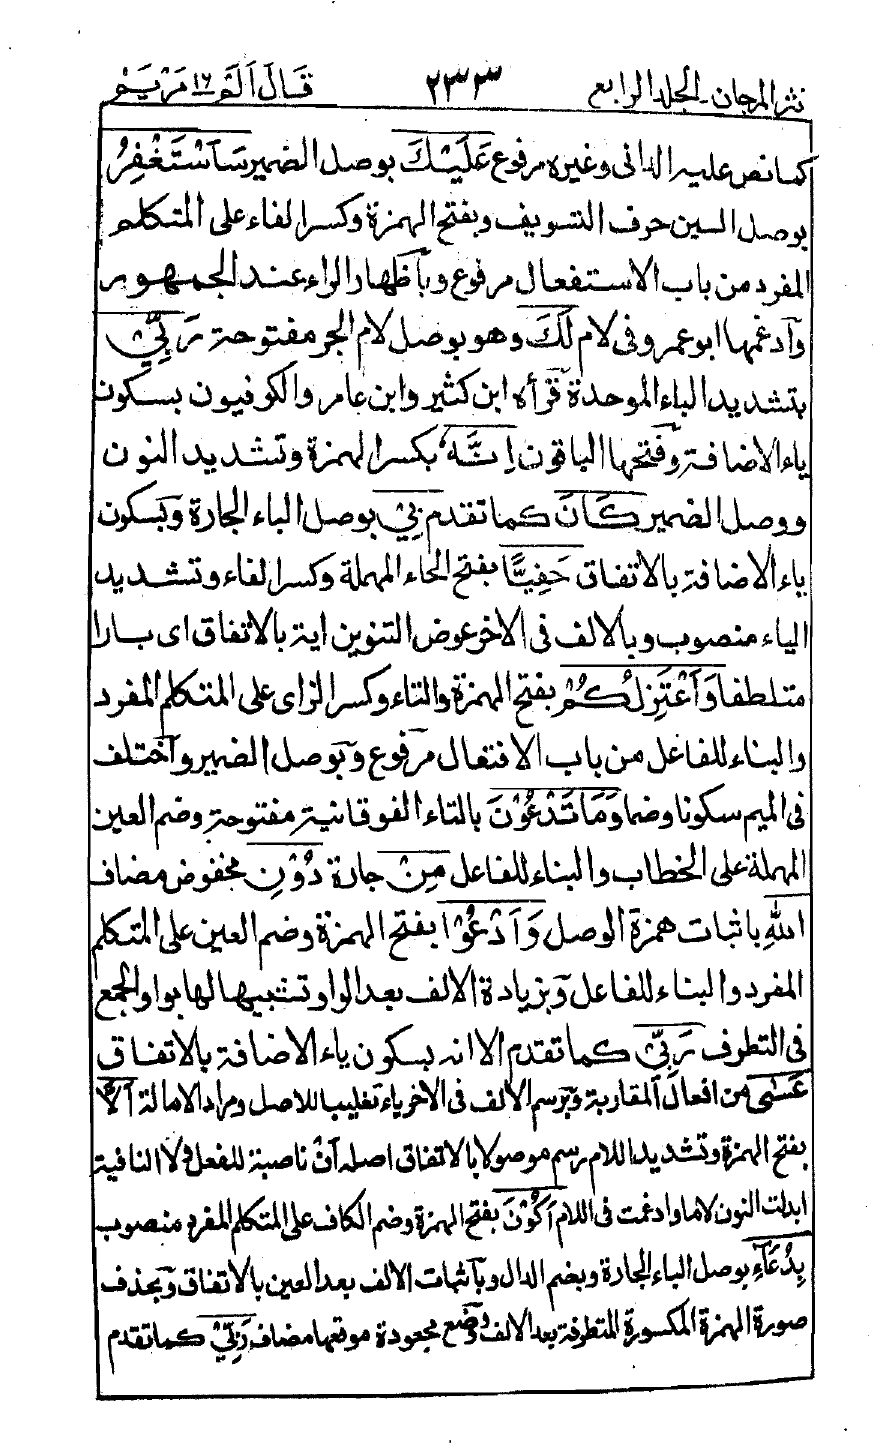 نثر المرجان ـ الجلد الرابع ٢٣٣ قَالَ اَلَمْ ١٦ مَرْيَمْ
كما نص عليه الدانى وغيره مرفوع عَلَيْكَ بوصل الضمير سَاَسْتَغْفِرُ
بوصل السين حرف التسويف وبفتح الهمزة وكسر الفاء على المتكلم
المفرد من باب الاستفعال مرفوع وباظهار الراء عند الجمهور
وادغمها ابو عمرو فى لام لَكَ وهو بوصل لام الجر مفتوحة رَبِّيْ
بتشديد الباء الموحدة قرأه ابن كثير وابن عامر والكوفيون بسكون
ياء الاضافة وفتحها الباقون اِنَّهٗ بكسر الهمزة وتشديد النون
ووصل الضمير كَانَ كما تقدم بِيْ بوصل الباء الجارة وبسكون
ياء الاضافة بالاتفاق حَفِيًّا بفتح الحاء المهملة وكسر الفاء وتشديد
الياء منصوب وبالالف فى الاخر عوض التنوين اية بالاتفاق اى بارا
متلطفا وَاَعْتَزِلُكُمْ بفتح الهمزة والتاء وكسر الزاى على المتكلم المفرد
والبناء للفاعل من باب الافتعال مرفوع وبوصل الضمير واختلف
فى الميم سكونا وضما وَمَا تَدْعُوْنَ بالتاء الفوقانية مفتوحة وضم العين
المهملة على الخطاب والبناء للفاعل مِنْ جارة دُوْنِ مخفوض مضاف
اللهِ باثبات همزة الوصل وَاَدْعُوْا بفتح الهمزة وضم العين على المتكلم
المفرد والبناء للفاعل وبزيادة الالف بعد الواو تشبيها لها بواو الجمع
فى التطرف رَبِّيْ كما تقدم الا انه بسكون ياء الاضافة بالاتفاق
عَسٰى من افعال المقاربة وبرسم الالف فى الاخر ياء تغليبا للاصل ومراد الامالة اَلَّا
بفتح الهمزة وتشديد اللام رسم موصولا بالاتفاق اصله اَنْ ناصبة للفعل ولا النافية
ابدلت النون لاما وادغمت فى اللام اَكُوْنَ بفتح الهمزة وضم الكاف على المتكلم المفرد منصوب
بِدُعَآءِ بوصل الباء الجارة وبضم الدال وباثبات الالف بعد العين بالاتفاق وبحذف
صورة الهمزة المكسورة المتطرفة بعد الالف ووضع مجعودة موقعها مضاف رَبِّيْ كما تقدم